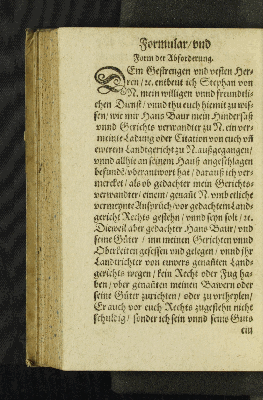 Formular/vnd
Form der Abforderung.
DEm Gestrengen vnd vesten Her-
ren/ɾc. entbeut ich Stephan von
N. mein willigen vnnd freundtli-
chen Dienst/vnnd thu euch hiemit zu wis-
sen/wie mir Hans Baur mein Hindersäß
vnnd Gerichts verwandter zu N. ein ver-
meinte Ladung oder Citation von euch vñ
ewerem Landtgericht zu N. außgegangen/
vnnd allhie an seinem Hauß angeschlagen
befunde/vberantwort hat/darauß ich ver-
mercket/als ob gedachter mein Gerichts-
verwandter/einem/genañt N. vmb etliche
vermeynte Ansprüch/vor gedachtem Land-
gericht Rechts gestehn/vnnd seyn solt/ɾc.
Dieweil aber gedachter Hans Baur/vnd
seine Güter/inn meinen Gerichten vnnd
Oberkeiten gesessen vnd gelegen/vnnd jhr
Landtrichter von euwers genañten Land-
gerichts wegen/kein Recht oder Fug ha-
ben/vber genañten meinen Bawern oder
seine Güter zurichten/oder zu vrtheylen/
Er auch vor euch Rechts zugestehn nicht
schuldig/sonder ich sein vnnd seins Guts
ein